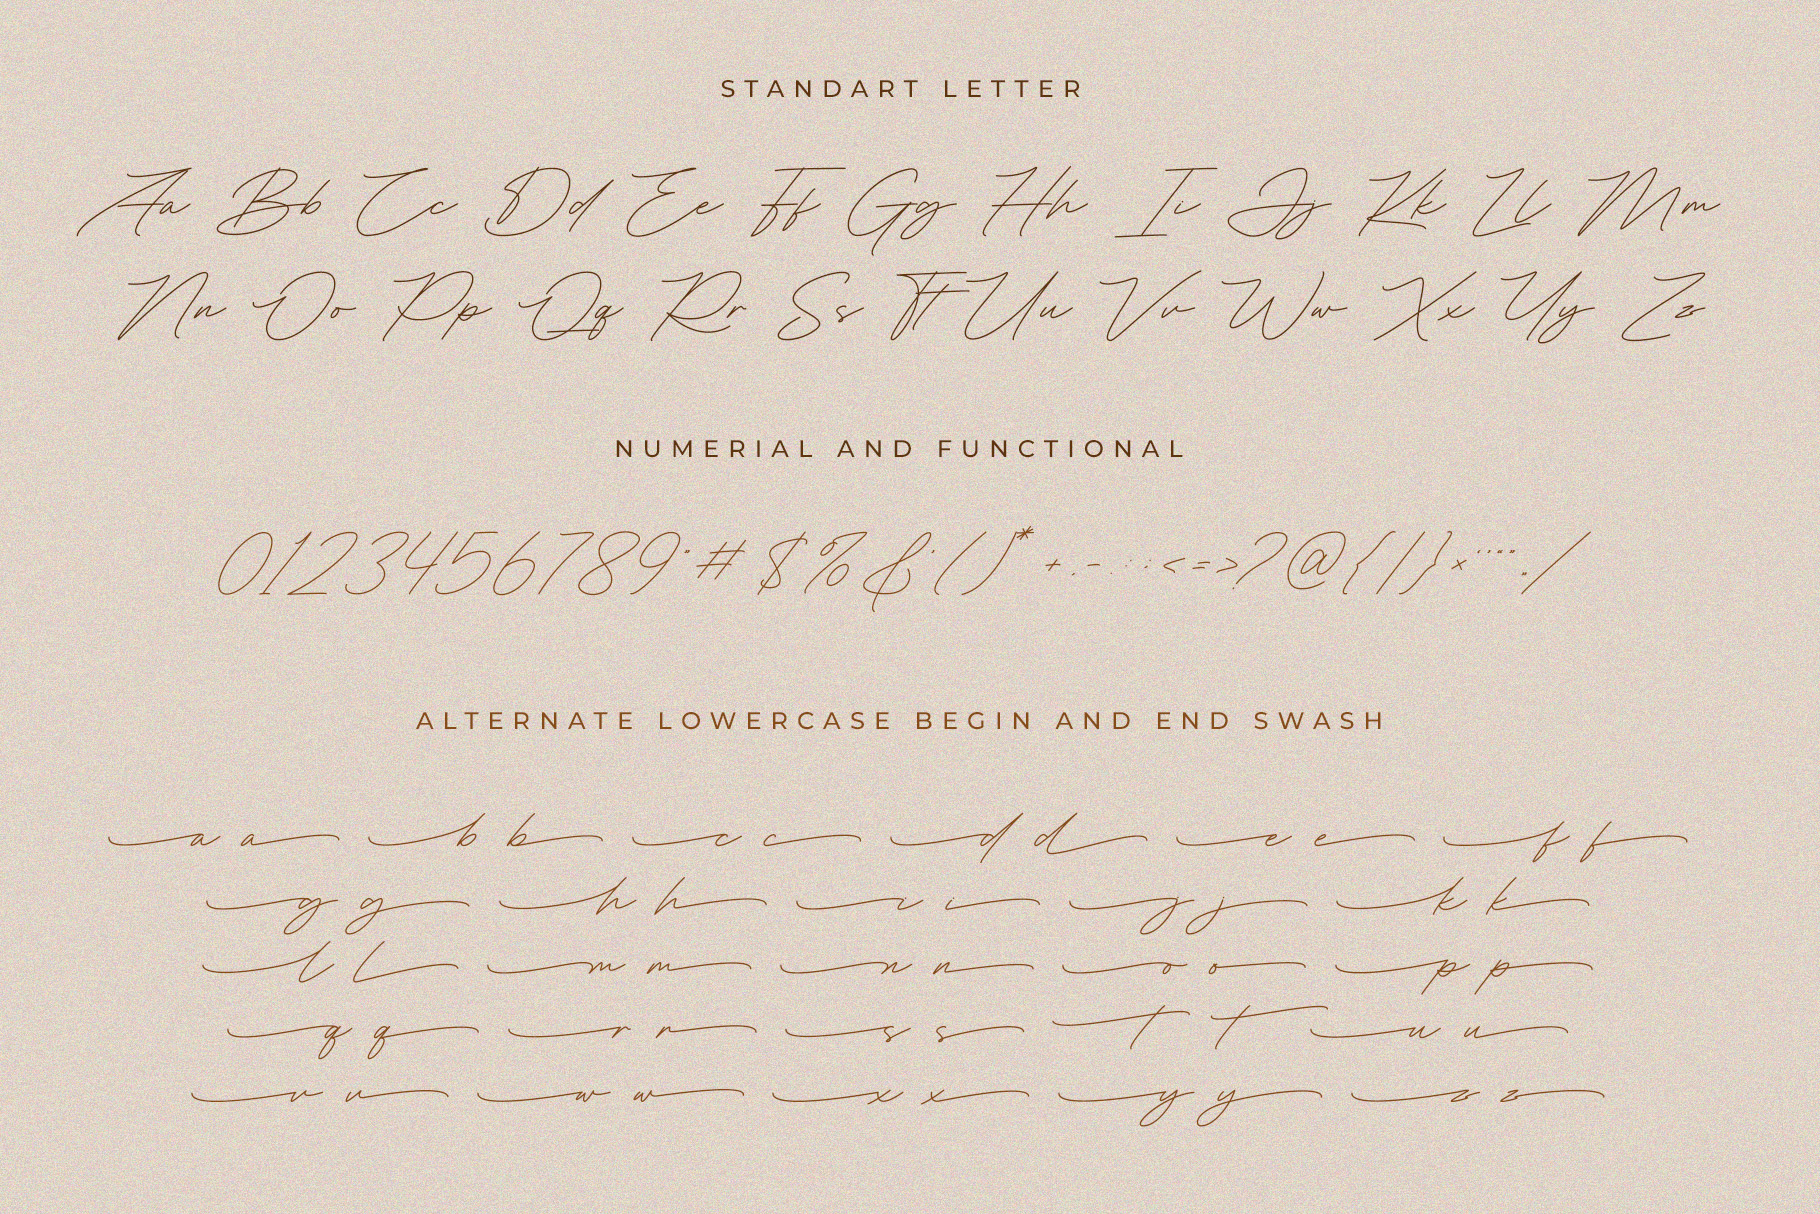 STANDART LETTER
Aa Bb Cc Dd Ee Ff Gg Hh Ii Jj Kk Ll Mm
Nn Oo Pp Qq Rr Ss Tt Uu Vv Ww Xx Yy Zz
NUMERIAL AND FUNCTIONAL
0123456789 # $ % & ( ) * + , - . : ; < = > ? @ { / } × /
ALTERNATE LOWERCASE BEGIN AND END SWASH
a a b b c c d d e e f f
g g h h i i j j k k
l l m m n n o o p p
q q r r s s t t u u
v v w w x x y y z z